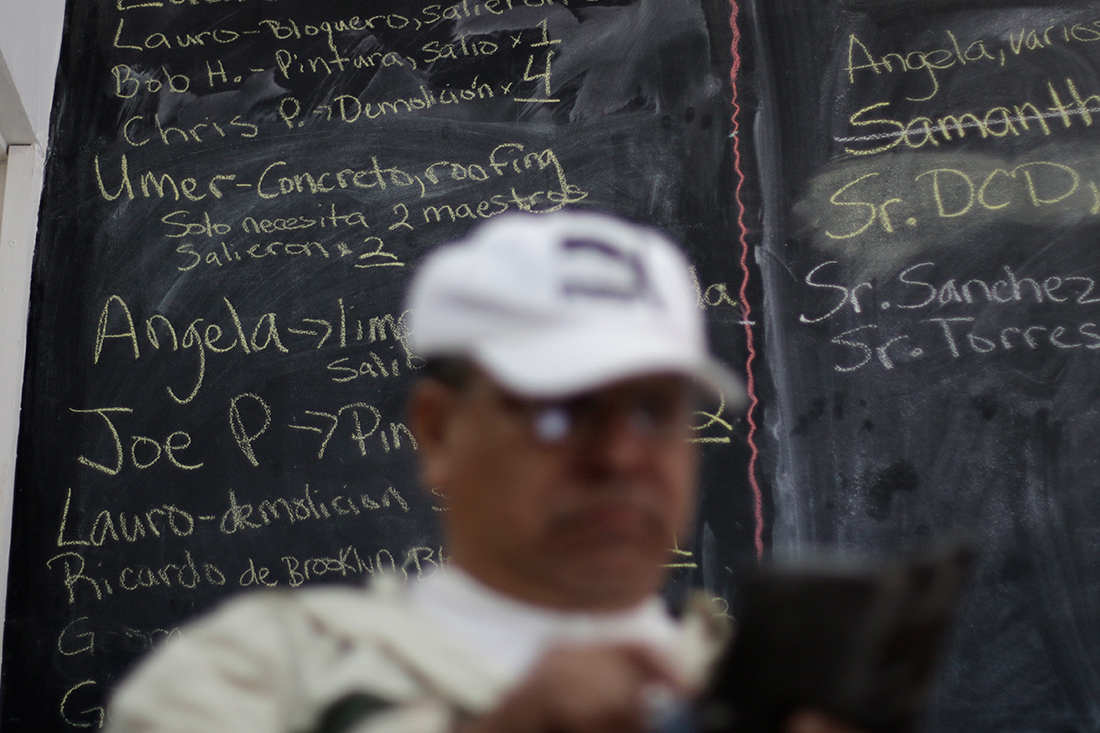 Lauro-Bloquero, salieron
Bob H.-Pintura, salio x 1
Chris P.→Demolición x 4
Umer-Concreto, roofing
Solo necesita 2 maestros
Salieron x 2
Angela→
Joe P→
2
Lauro-demolicion
Ricardo de Brooklyn,
Angela, varios
Samanth
Sr. DCD,
Sr. Sanchez
Sr. Torres